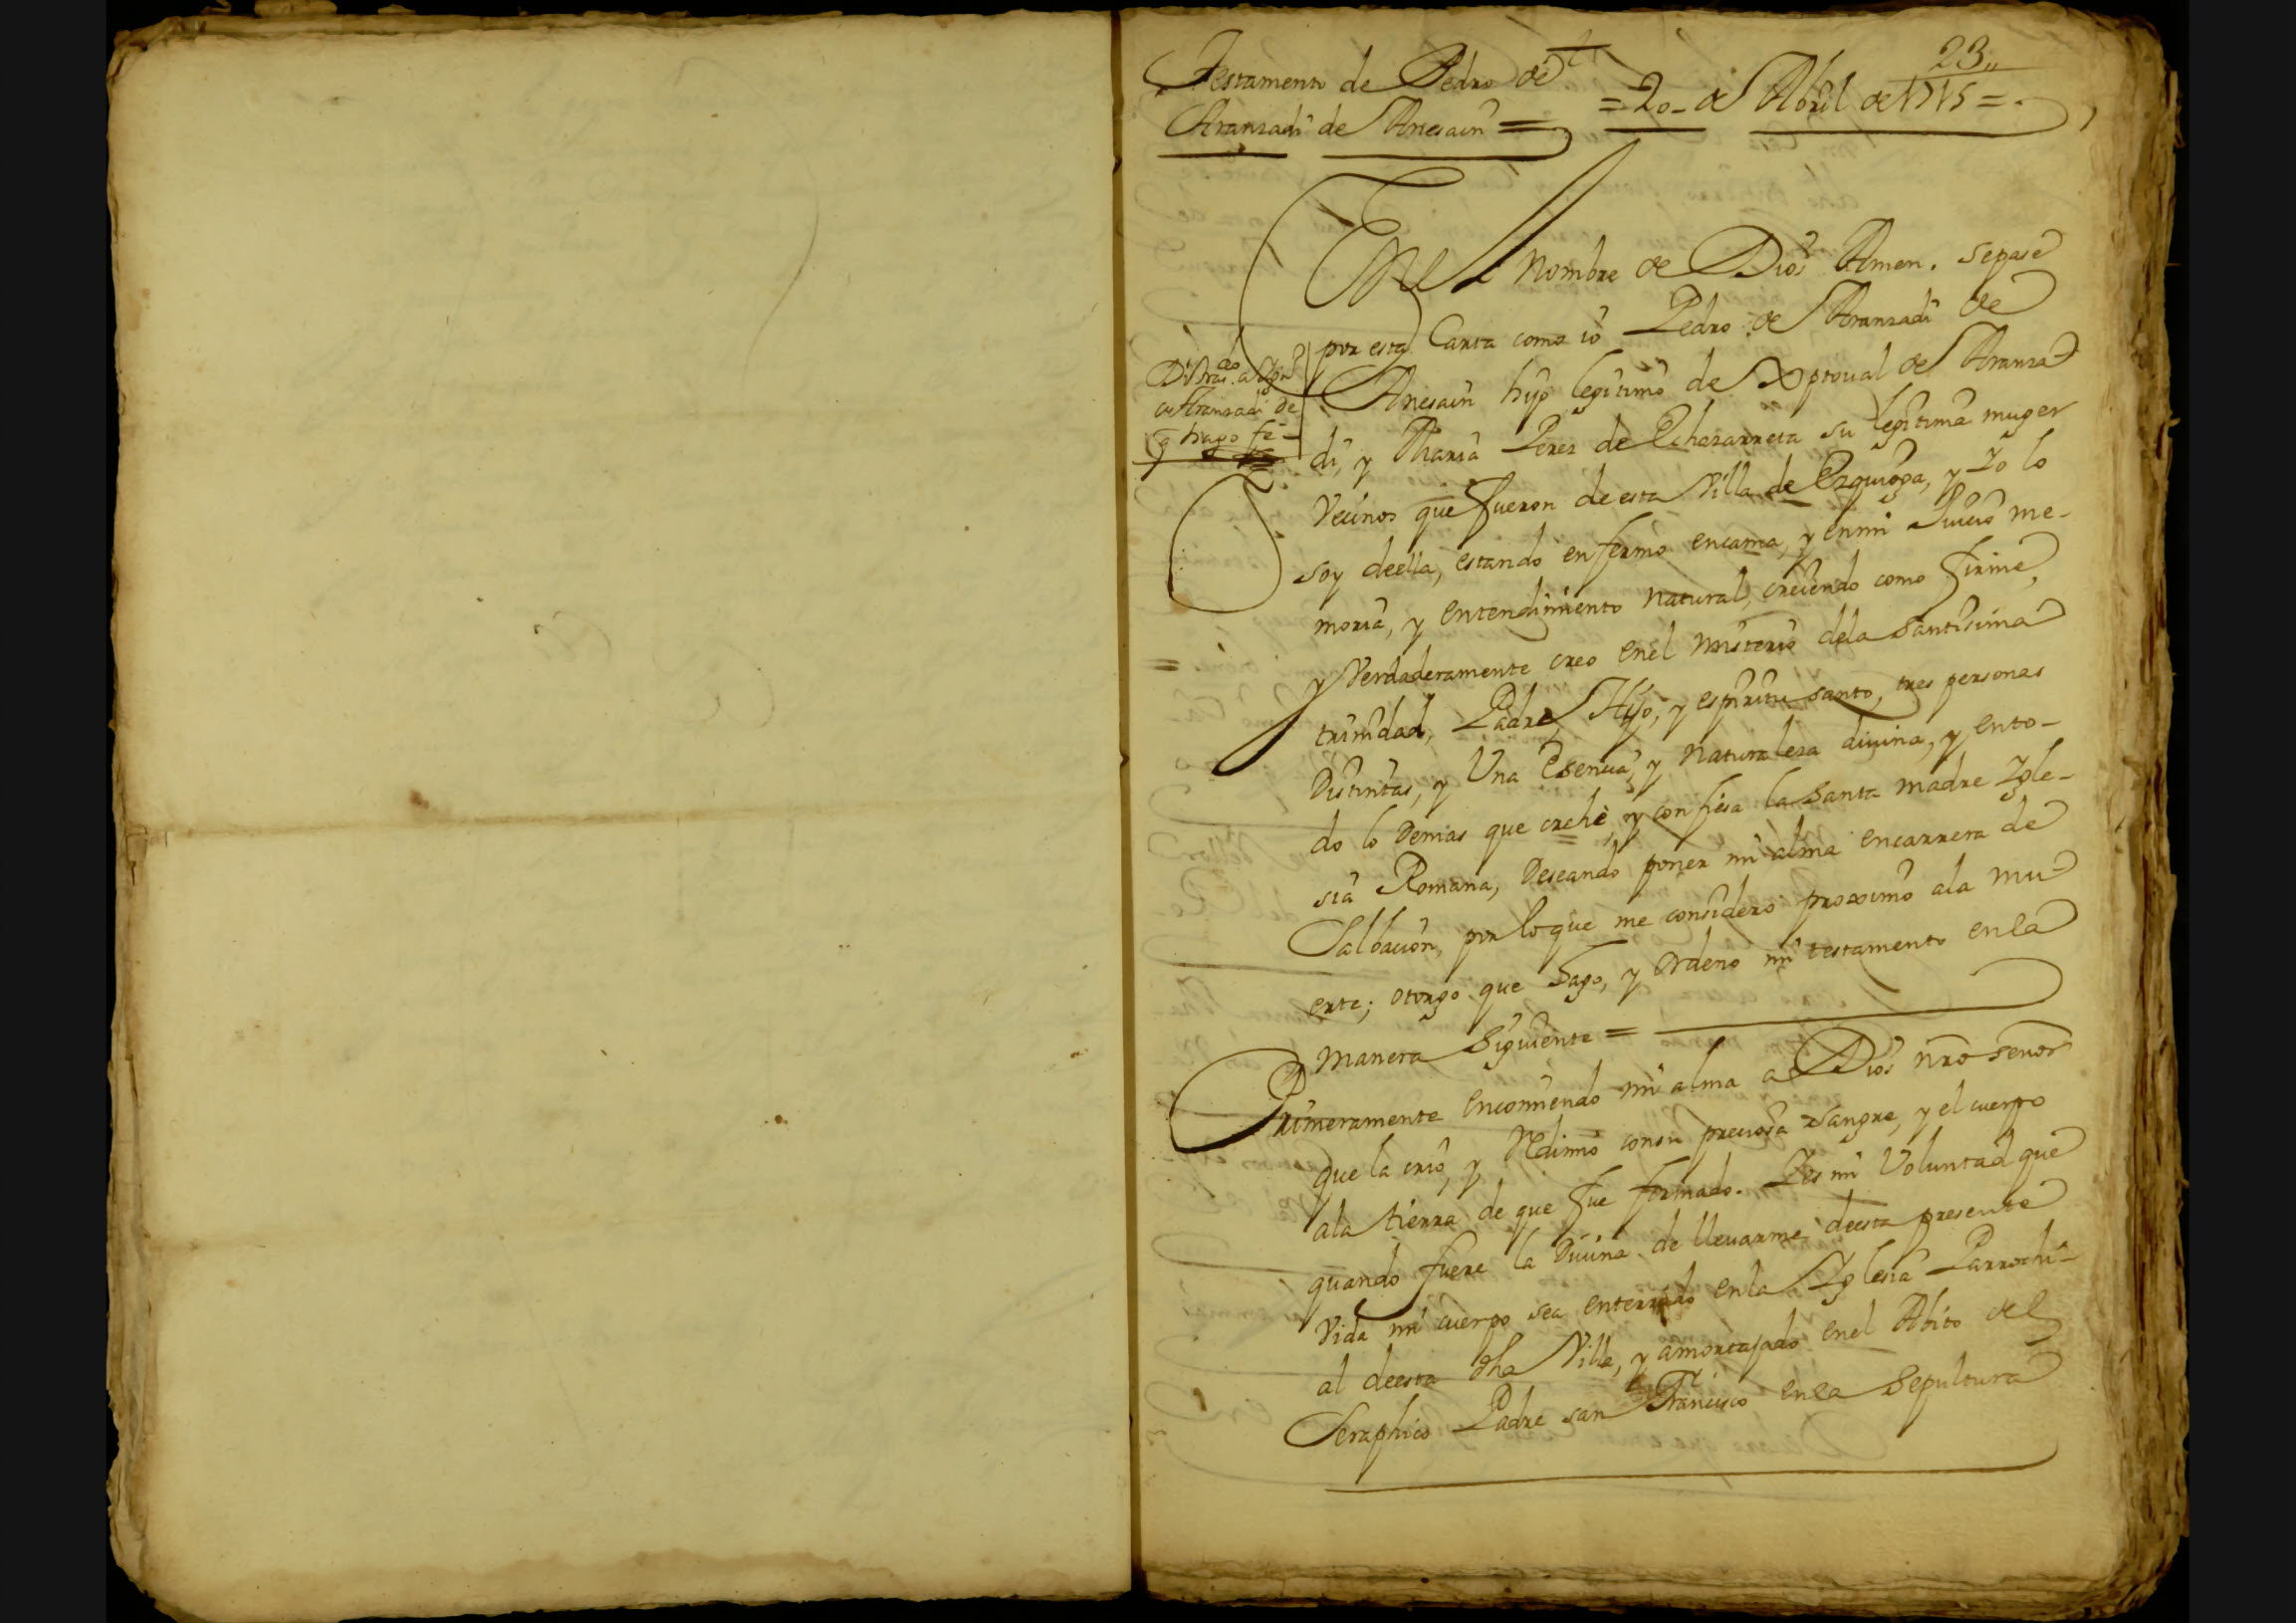 23
Testamento de Pedro de
Aranzadi de Anesain =
= 20 - de Abril de 1715 =
En el Nombre de Dios Amen. sepase
por esta Carta como io Pedro de Aranzadi de
Anesain hijo legitimo de Xptoual de Aranza
di, y Maria Perez de Echazarreta su legitima muger
Vecinos que fueron de esta Villa de Ezquioga, y Yo lo
soy deella, estando enfermo encama, y enmi Juicio me-
moria, y entendimiento natural, creiendo como firme,
y Verdaderamente creo enel misterio dela santisima
trinidad, Padre, Hijo, y espiritu santo, tres personas
Distintas, y Una Esencia, y naturaleza diuina, y ento-
do lo Demas que crehè, y confiesa la Santa madre Igle-
sia Romana, Deseando poner mi alma encarrera de
Salbacion, por loque me considero proximo ala mu-
erte; otorgo que hago, y Ordeno mi testamento enla
manera Siguiente =
Primeramente encomiendo mi alma a Dios nro señor
que la crio, y Redimio consu preciosa sangre, y el cuerpo
ala tierra de que fue formado. Y es mi Voluntad que
quando fuere la Diuina de lleuarme deesta presente
Vida mi cuerpo sea enterrado enla Iglesia Parrochi-
al deesta dha Villa, y amortajado enel Abito del
Seraphico Padre san Francisco enla sepultura
de Aranzadi de
q hago fe -